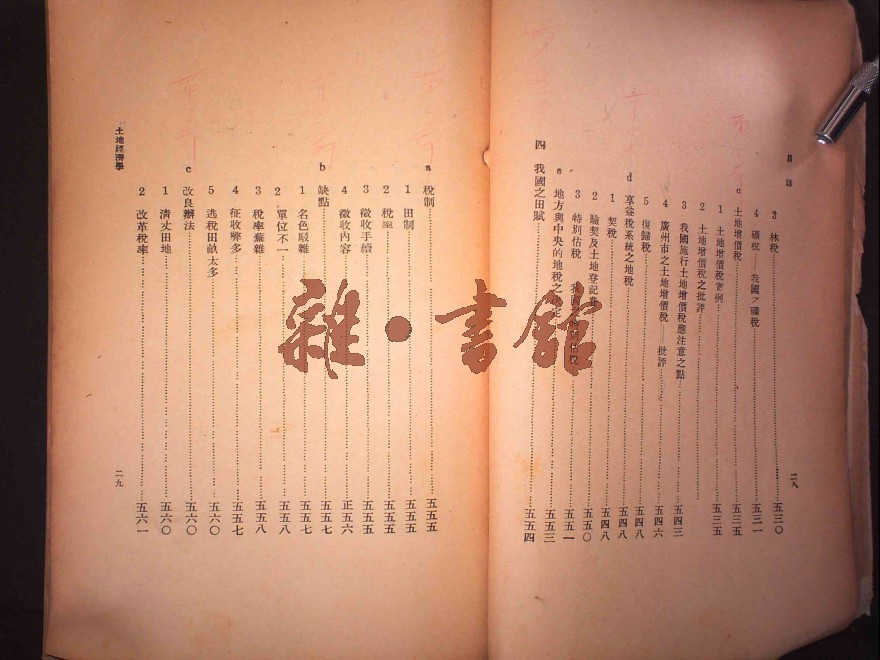 目錄
3 林稅 五三〇
4 礦稅——我國之礦稅 五三一
c 土地增價稅 五三五
1 土地增價稅實例 五三五
2 土地增價稅之批評
3 我國施行土地增價稅應注意之點 五四三
4 廣州市之土地增價稅——批評 五四六
5 復歸稅 五四八
d 享益稅系統之地稅 五四八
1 契稅 五四八
2 驗契及土地登記費 五五〇
3 特別估稅 五五一
e 地方與中央的地稅之 五五三
四 我國之田賦 五五四
二八
土地經濟學
a 稅制 五五五
1 田制 五五五
2 稅率 五五五
3 徵收手續 五五五
4 徵收內容 五五六
b 缺點 五五七
1 名色駁雜 五五七
2 單位不一 五五八
3 稅率蕪雜 五五八
4 征收弊多 五五七
5 逃稅田畝太多 五六〇
c 改良辦法 五六〇
1 清丈田地 五六〇
2 改革稅率 五六一
二九
雜·書館